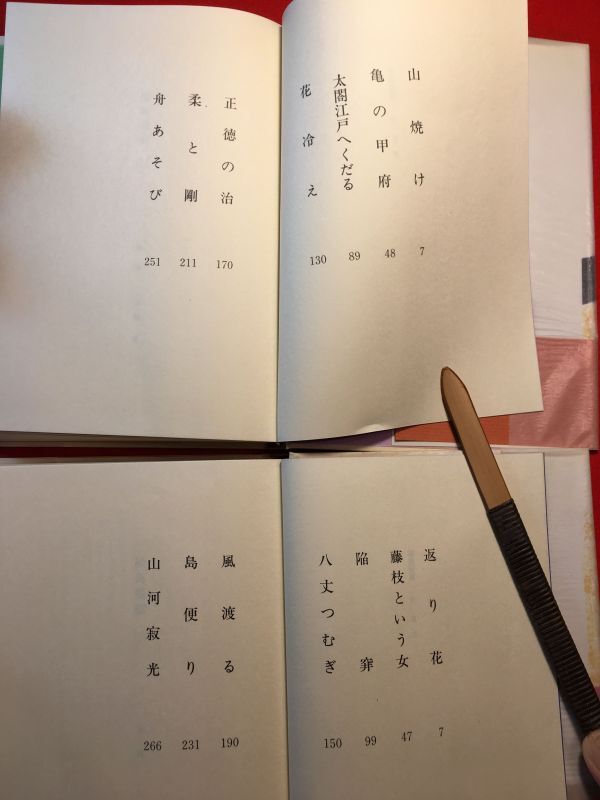 山焼け 7
亀の甲府 48
太閤江戸へくだる 89
花冷え 130
正徳の治 170
柔と剛 211
舟あそび 251
返り花 7
藤枝という女 47
陥穽 99
八丈つむぎ 150
風渡る 190
島便り 231
山河寂光 266